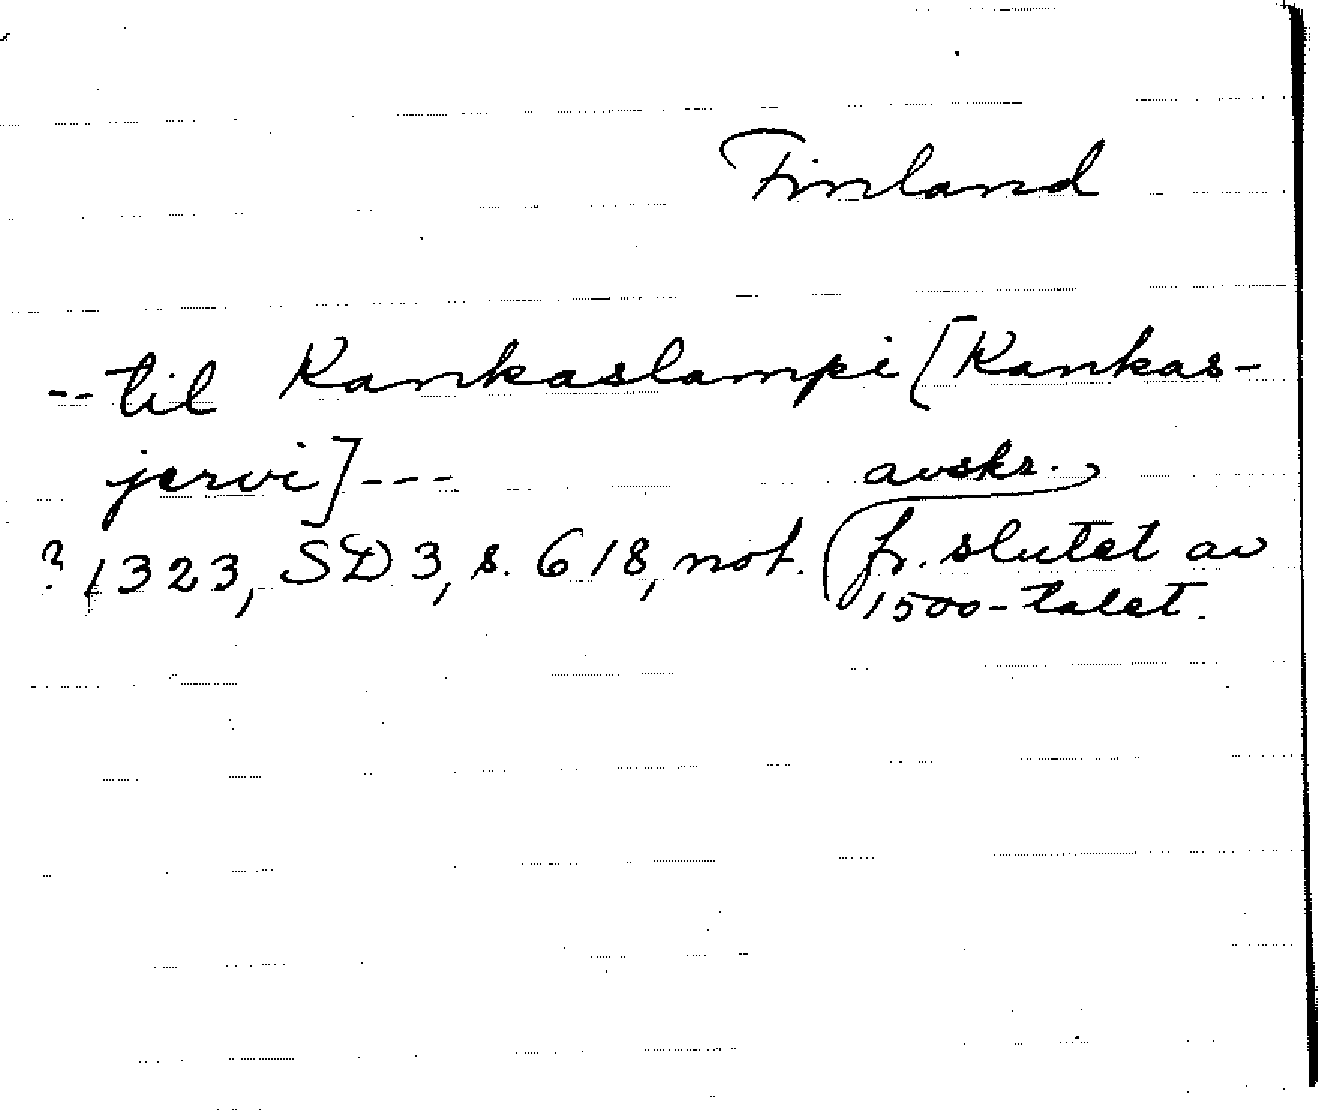 Finland
-- til Kankaslampi [Kankas-
jervi] ---
avskr.
? 1323, SD 3, s. 618, not. (fr. slutet av
1500-talet.